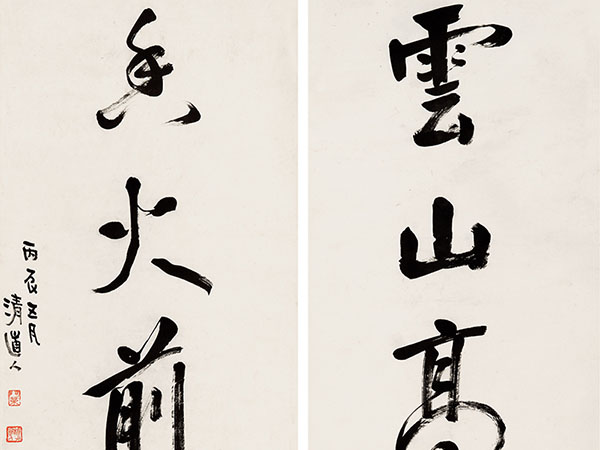 雲山高
香火前
丙辰五月
清道人